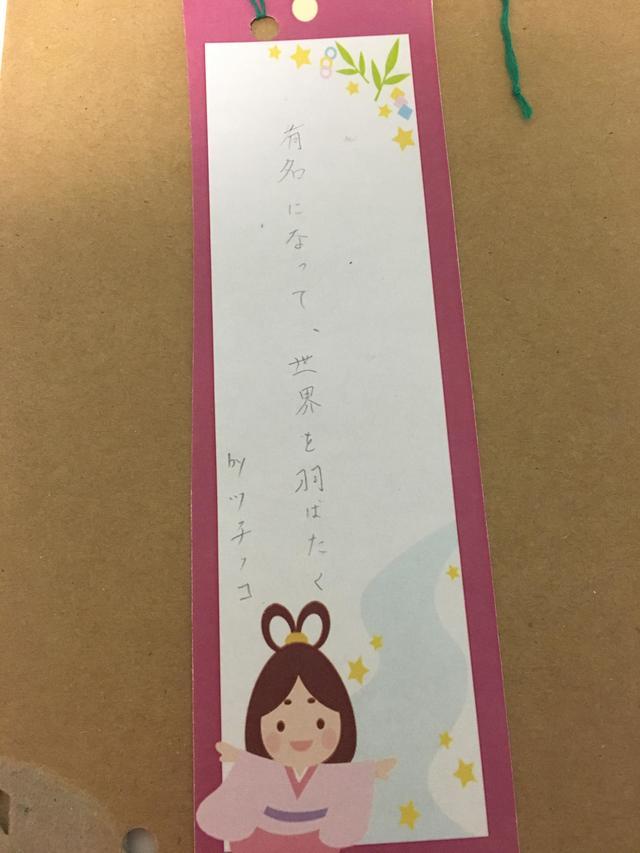 有名になって、世界を羽ばたく
byツチノコ